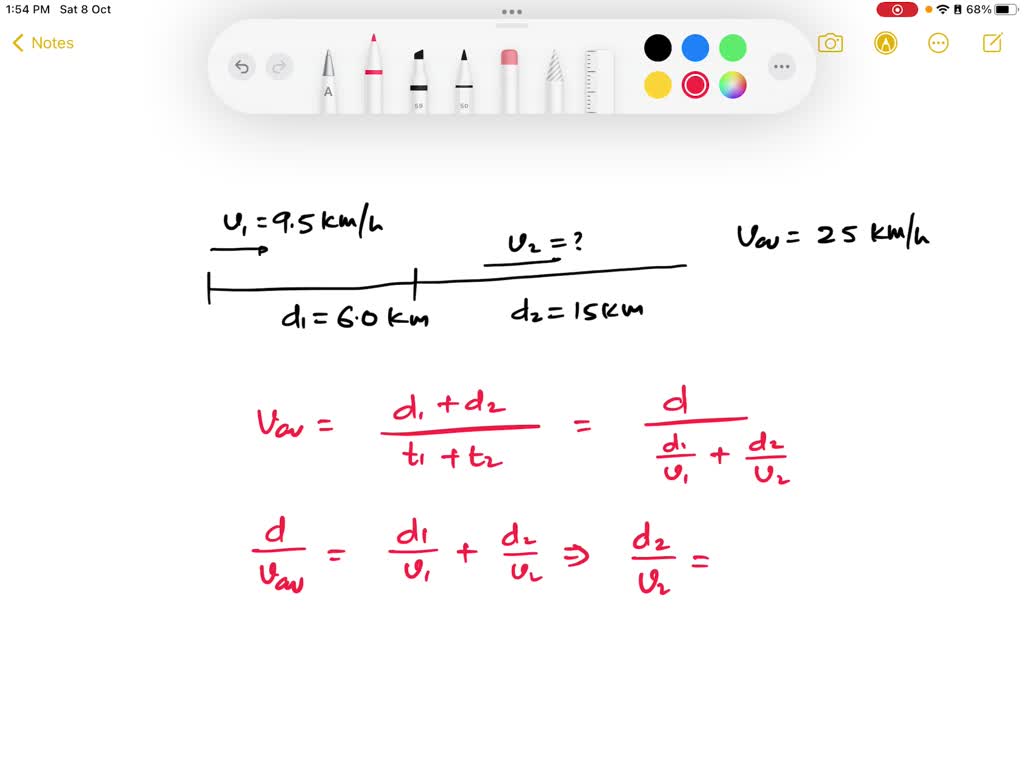 1:54 PM Sat 8 Oct 68%
Notes
A 59 50
v₁ = 9.5 km/h
v₂ = ?
vav = 25 km/h
d₁ = 6.0 km
d₂ = 15 km
vav = (d₁ + d₂)/(t₁ + t₂) = d/(d₁/v₁ + d₂/v₂)
d/vav = d₁/v₁ + d₂/v₂ ⇒ d₂/v₂ =